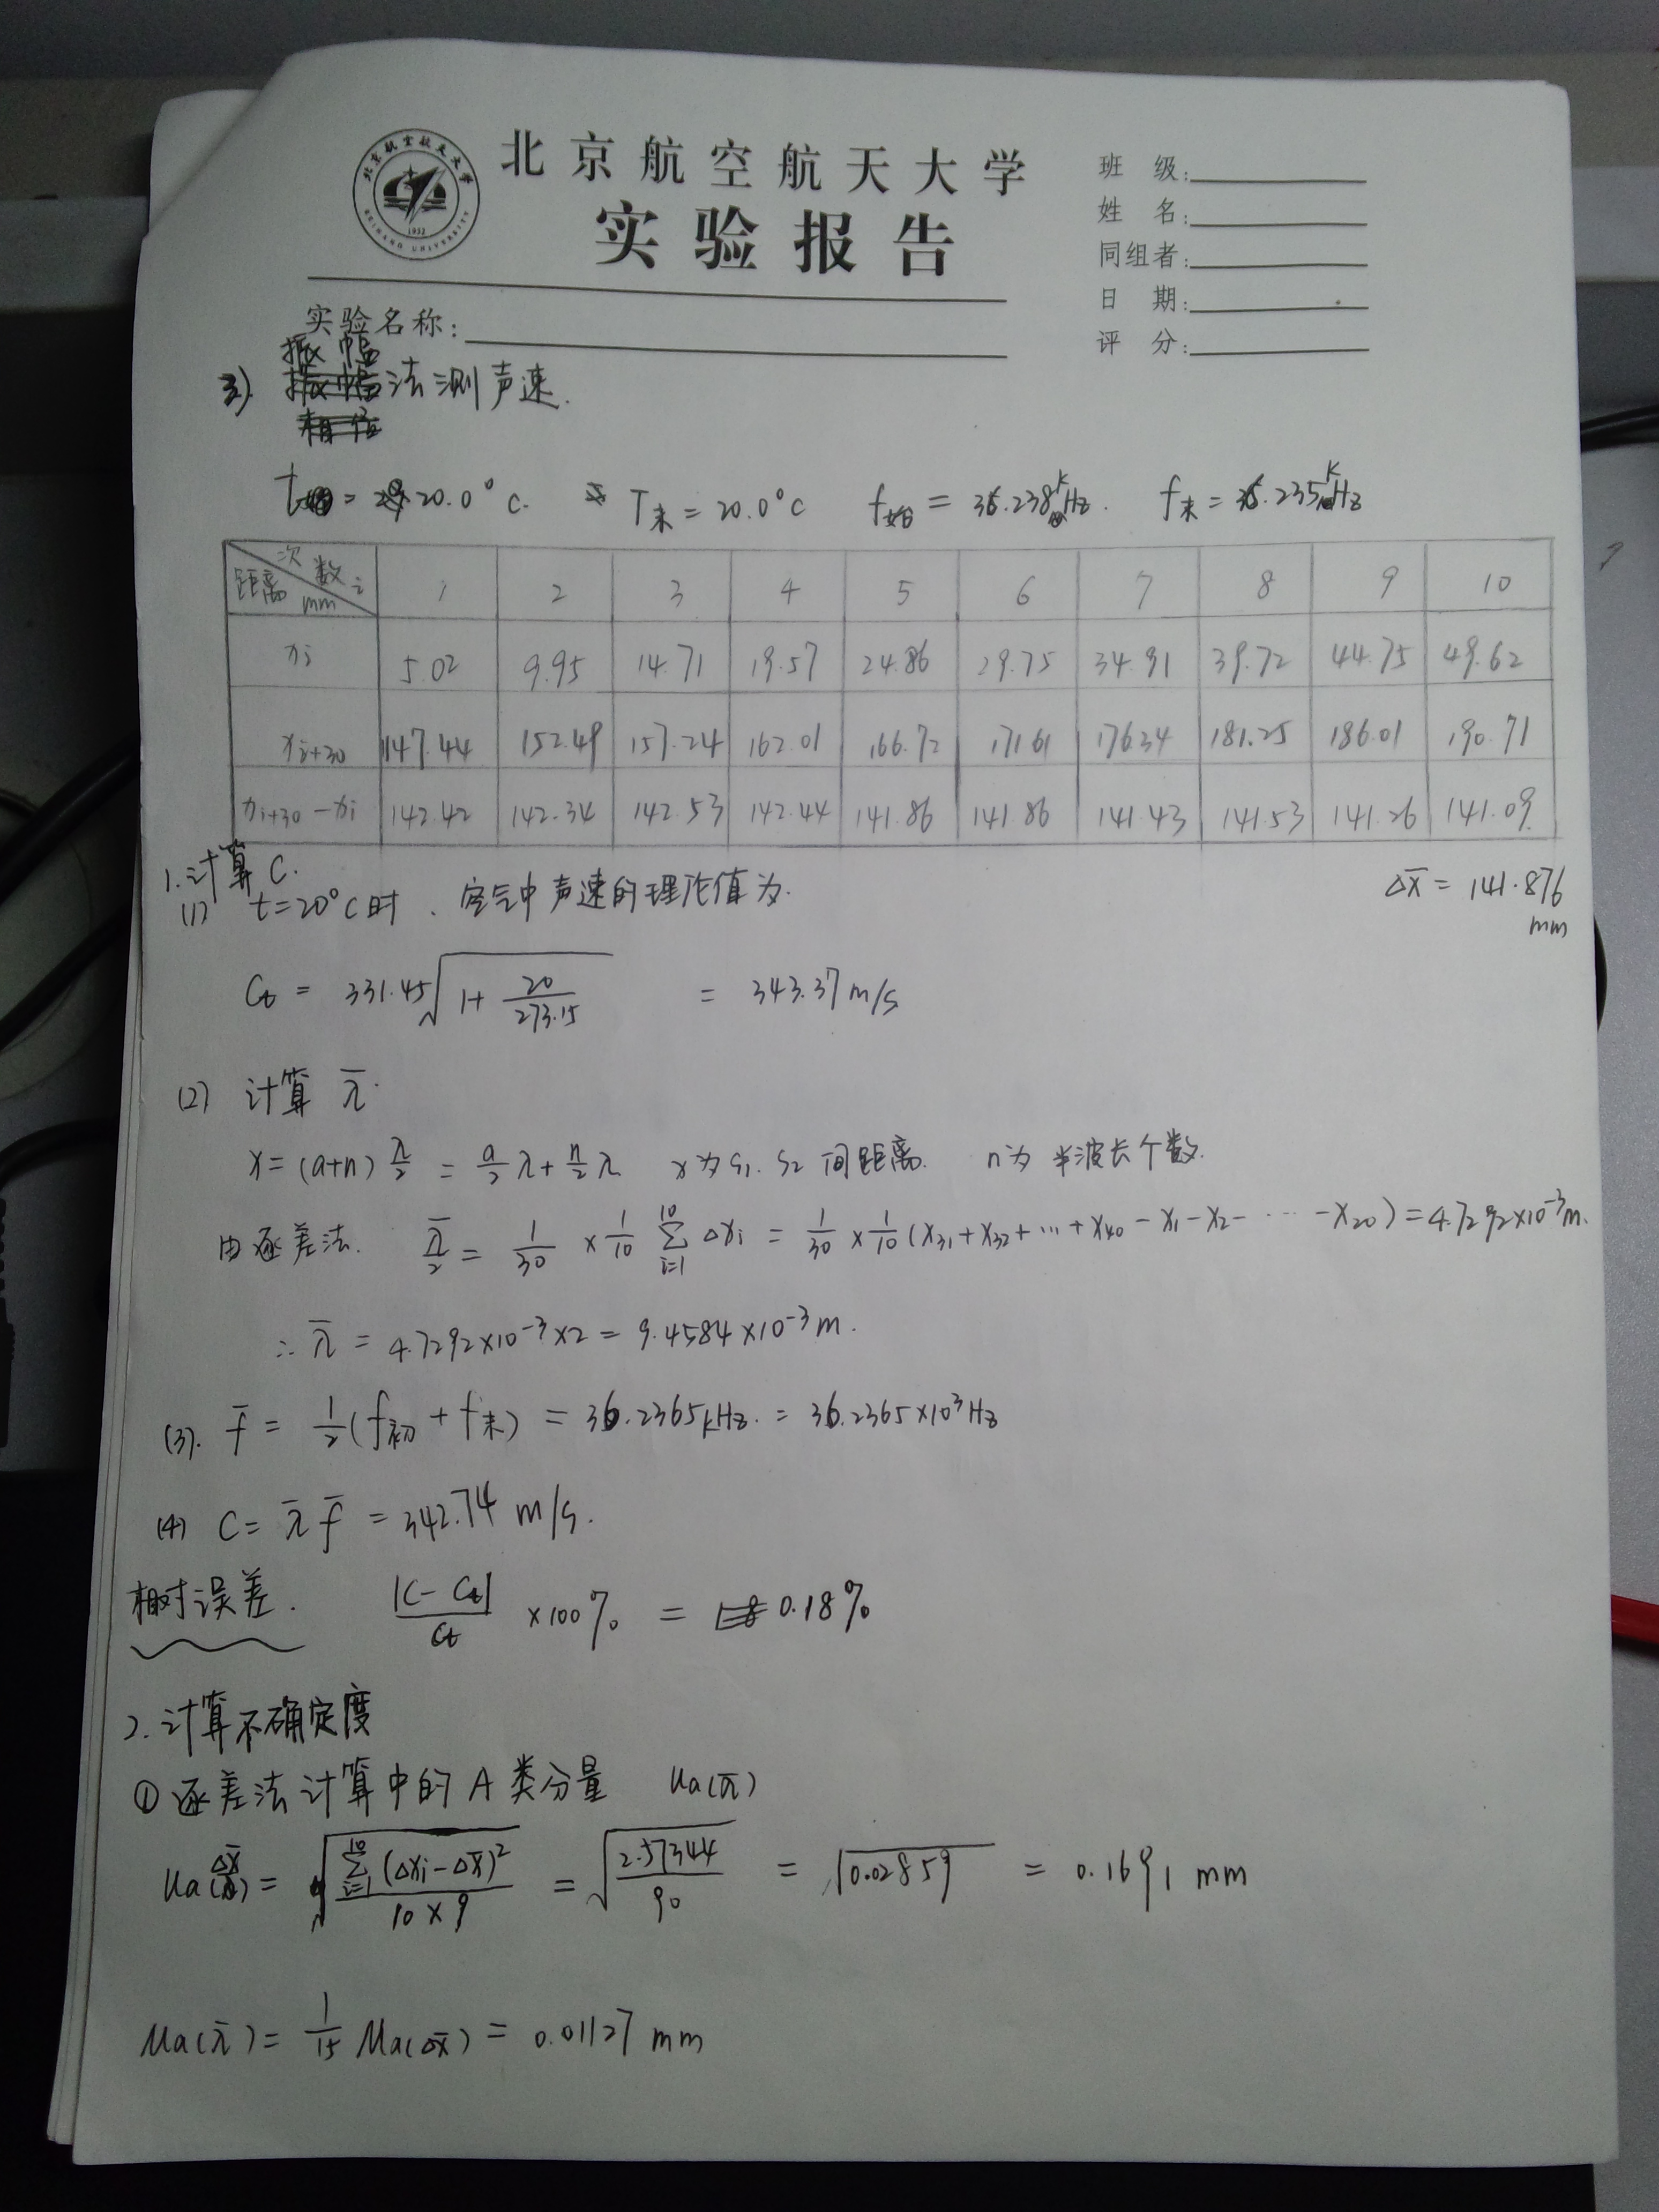 北京航空航天大学
实验报告
北京航空航天大学
BEIHANG UNIVERSITY
1952
班 级:
姓 名:
同组者:
日 期:
评 分:
实验名称:
3). 振幅法测声速.
t始 = 20.0°C. T末 = 20.0°C f始 = 36.238kHz. f末 = 36.235kHz
次数 i 距离 mm 1 2 3 4 5 6 7 8 9 10
xi 5.02 9.95 14.71 19.57 24.86 29.75 34.91 39.72 44.75 49.62
xi+30 147.44 152.49 157.24 162.01 166.72 171.61 176.34 181.25 186.01 190.71
xi+30 - xi 142.42 142.34 142.53 142.44 141.86 141.86 141.43 141.53 141.26 141.09
Δx̄ = 141.876 mm
1. 计算 C.
(1) t=20°C时, 空气中声速的理论值为.
Ct = 331.45√(1+20/273.15) = 343.37m/s
(2) 计算 λ̄.
x=(a+n)λ/2 = a/2 λ + n/2 λ x为S1. S2 间距离. n为 半波长个数.
由逐差法. λ̄/2 = 1/30 × 1/10 Σ(i=1→10) Δxi = 1/30 × 1/10 (x31+x32+…+x40-x1-x2-…-x20)=4.7292×10⁻³m.
∴ λ̄ = 4.7292×10⁻³×2 = 9.4584×10⁻³m.
(3). f̄ = 1/2(f初 + f末) = 36.2365kHz. = 36.2365×10³Hz
(4) C= λ̄ f̄ = 342.74 m/s.
相对误差. |C-Ct|/Ct ×100% = 0.18%
2. 计算不确定度
① 逐差法计算中的 A 类分量 Ua(λ̄)
Ua(Δx̄) = √(Σ(i=1→10)(Δxi-Δx̄)²/(10×9)) = √(2.57344/90) = √0.02859 = 0.1691 mm
Ua(λ̄) = 1/15 Ua(Δx̄) = 0.01127 mm